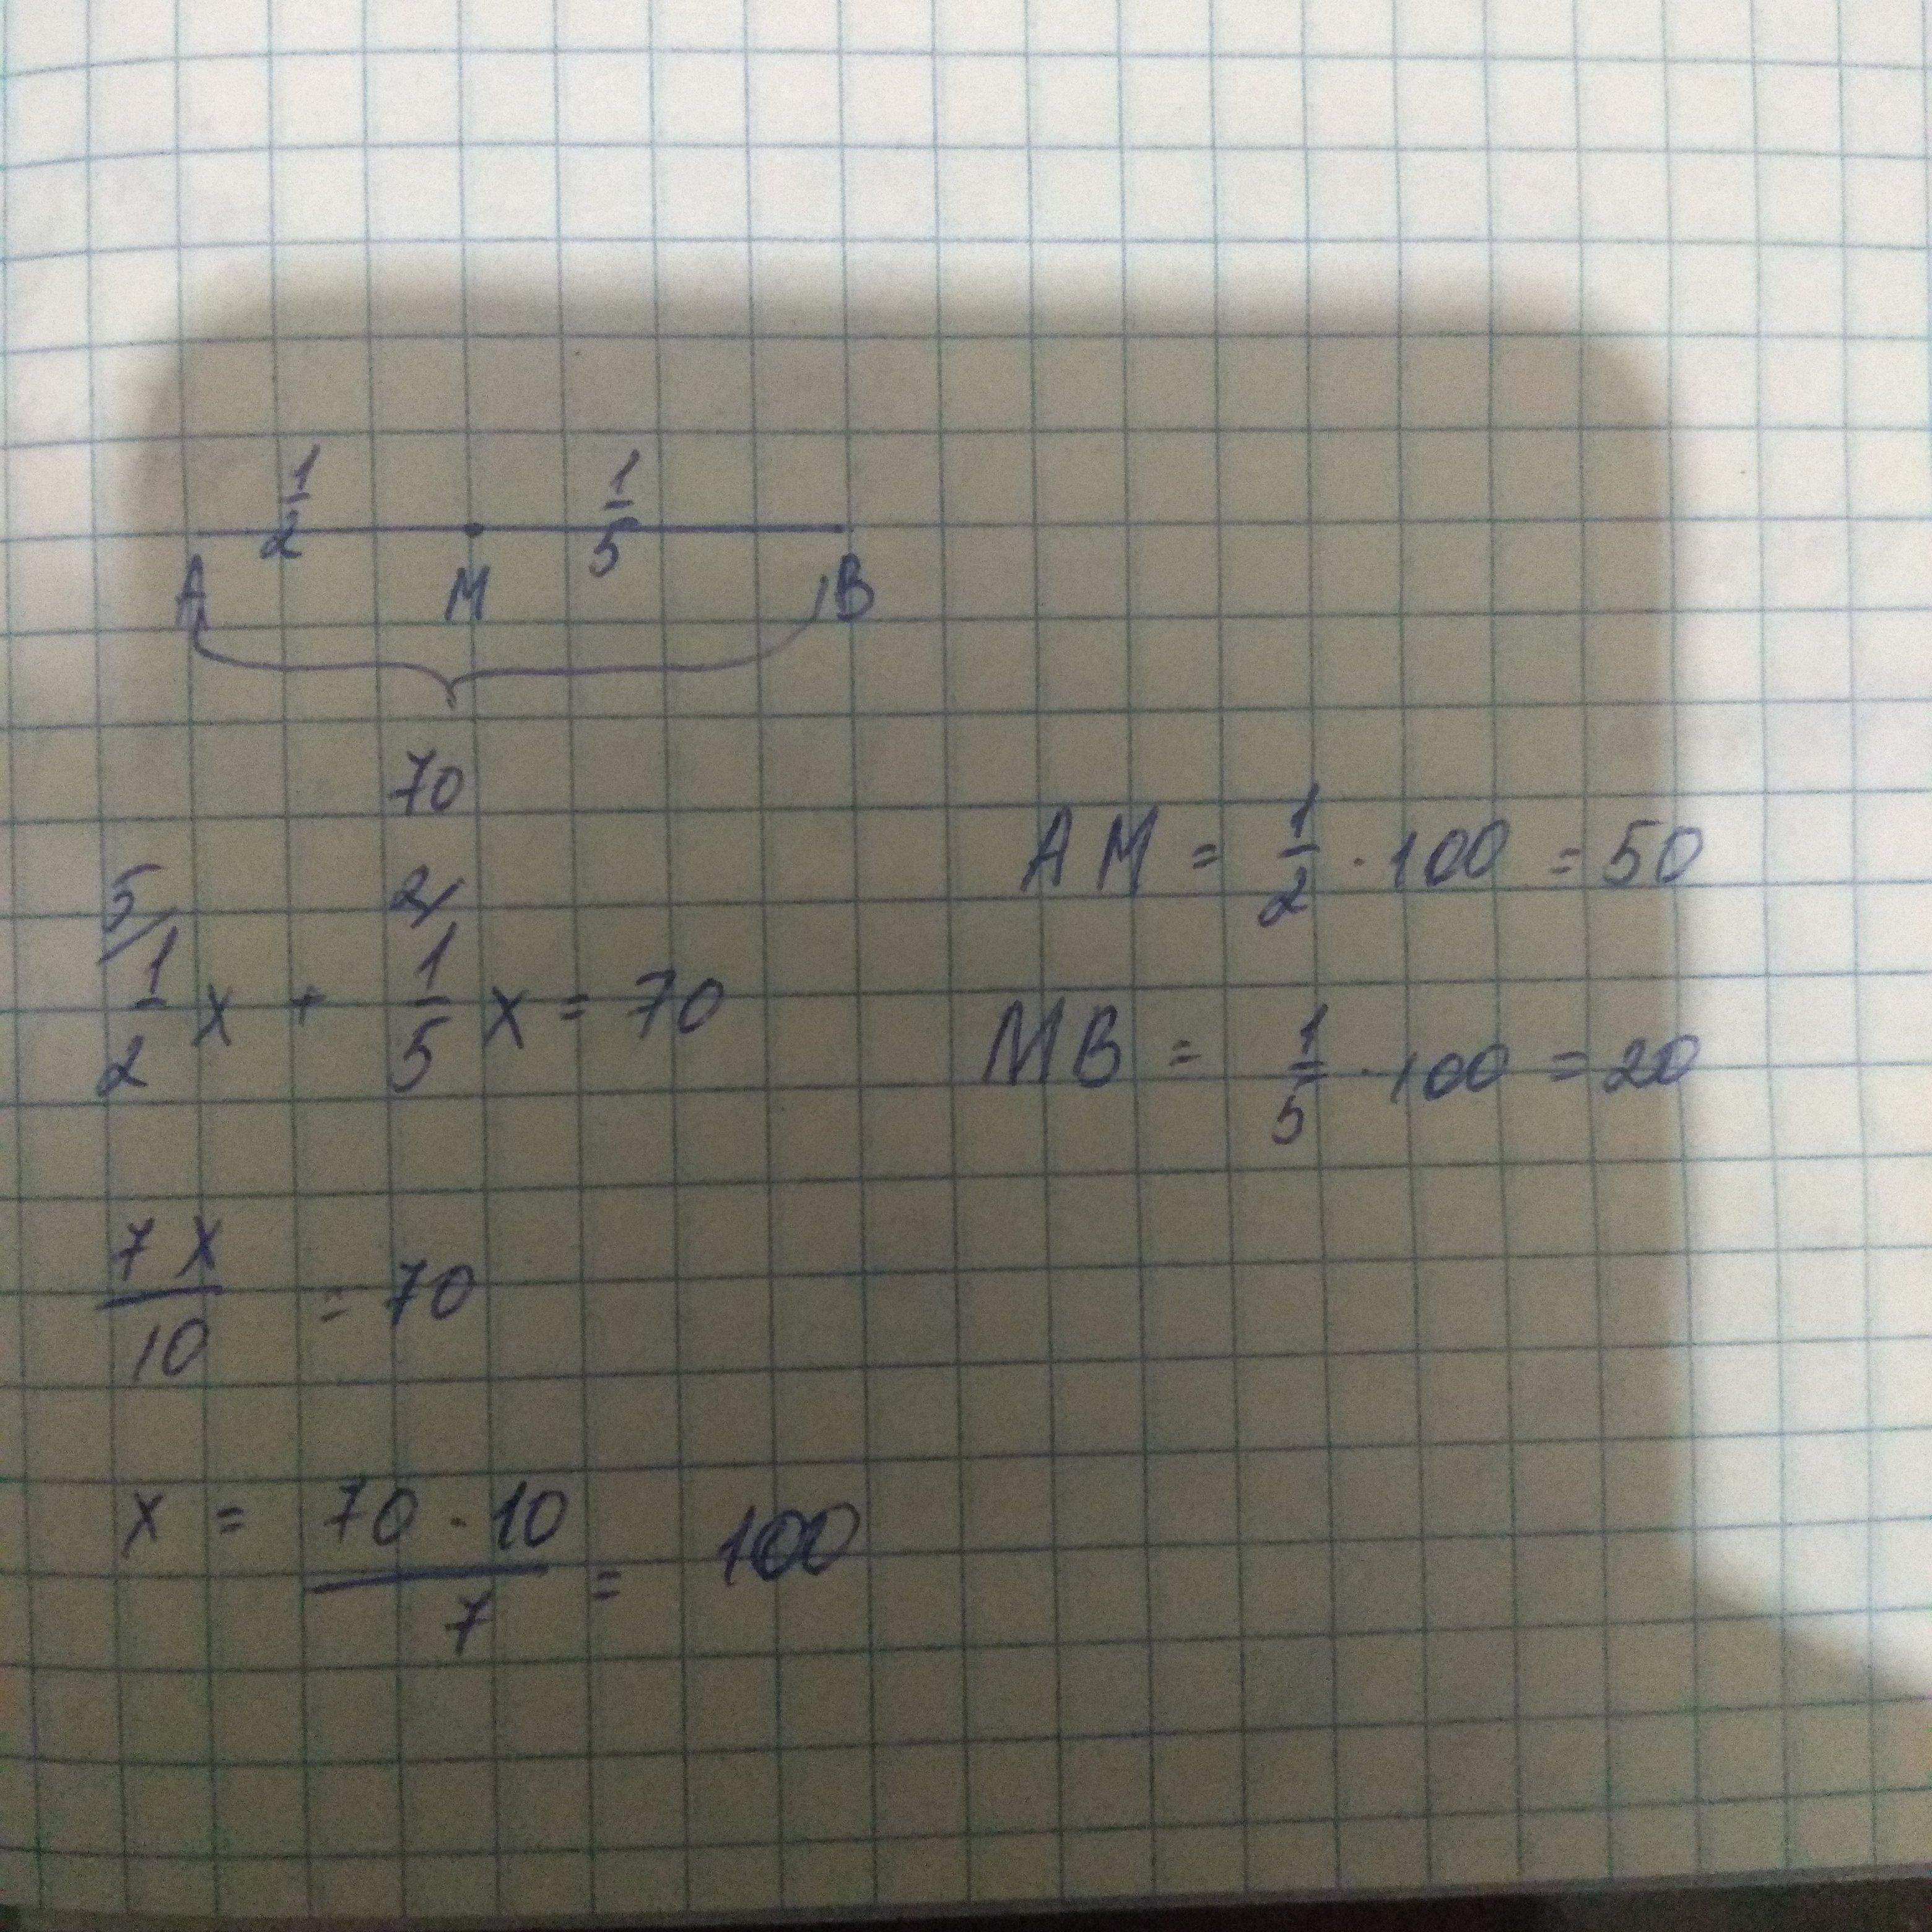 1/2 1/5
A M B
70
5/ 2/
1/2 x + 1/5 x = 70
7x/10 = 70
x = 70 · 10/7 = 100
AM = 1/2 · 100 = 50
MB = 1/5 · 100 = 20